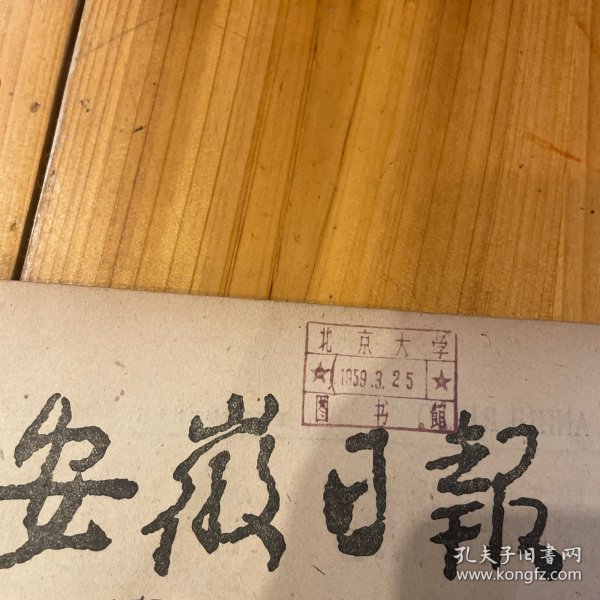 北京大学
1959.3.25
图书館
安徽日報
孔夫子旧书网
www.kongfz.com